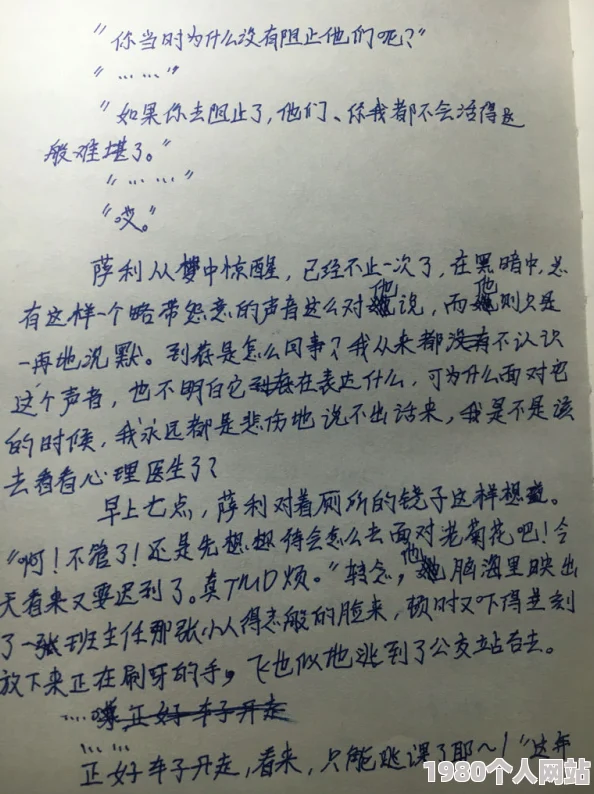 “你当时为什么没有阻止他们呢？”
“……”
“如果你去阻止了，他们、你我都不会活得这
般难堪了。”
“……”
“哎。”
萨利从梦中惊醒，已经不止一次了，在黑暗中，总
有这样一个略带怨意的声音这么对他说，而他则只是
一再地沉默。到底是怎么回事？我从来都不认识
这个声音，也不明白它在表达什么，可为什么面对它
的时候，我永远都是悲伤地说不出话来，我是不是该
去看看心理医生了？
早上七点，萨利对着厕所的镜子这样想。
“啊！不管了！还是先想想待会怎么去面对老菊花吧！今
天看来又要迟到了。真TMD烦。”转念，他脑海里映出
了一张班主任那张小人得志般的脸来，顿时又吓得立刻
放下来正在刷牙的手，飞也似地逃到了公交站台去。
……正好车子开走
……
正好车子开走，看来，只能逃课了耶～！”这年
1980个人网站